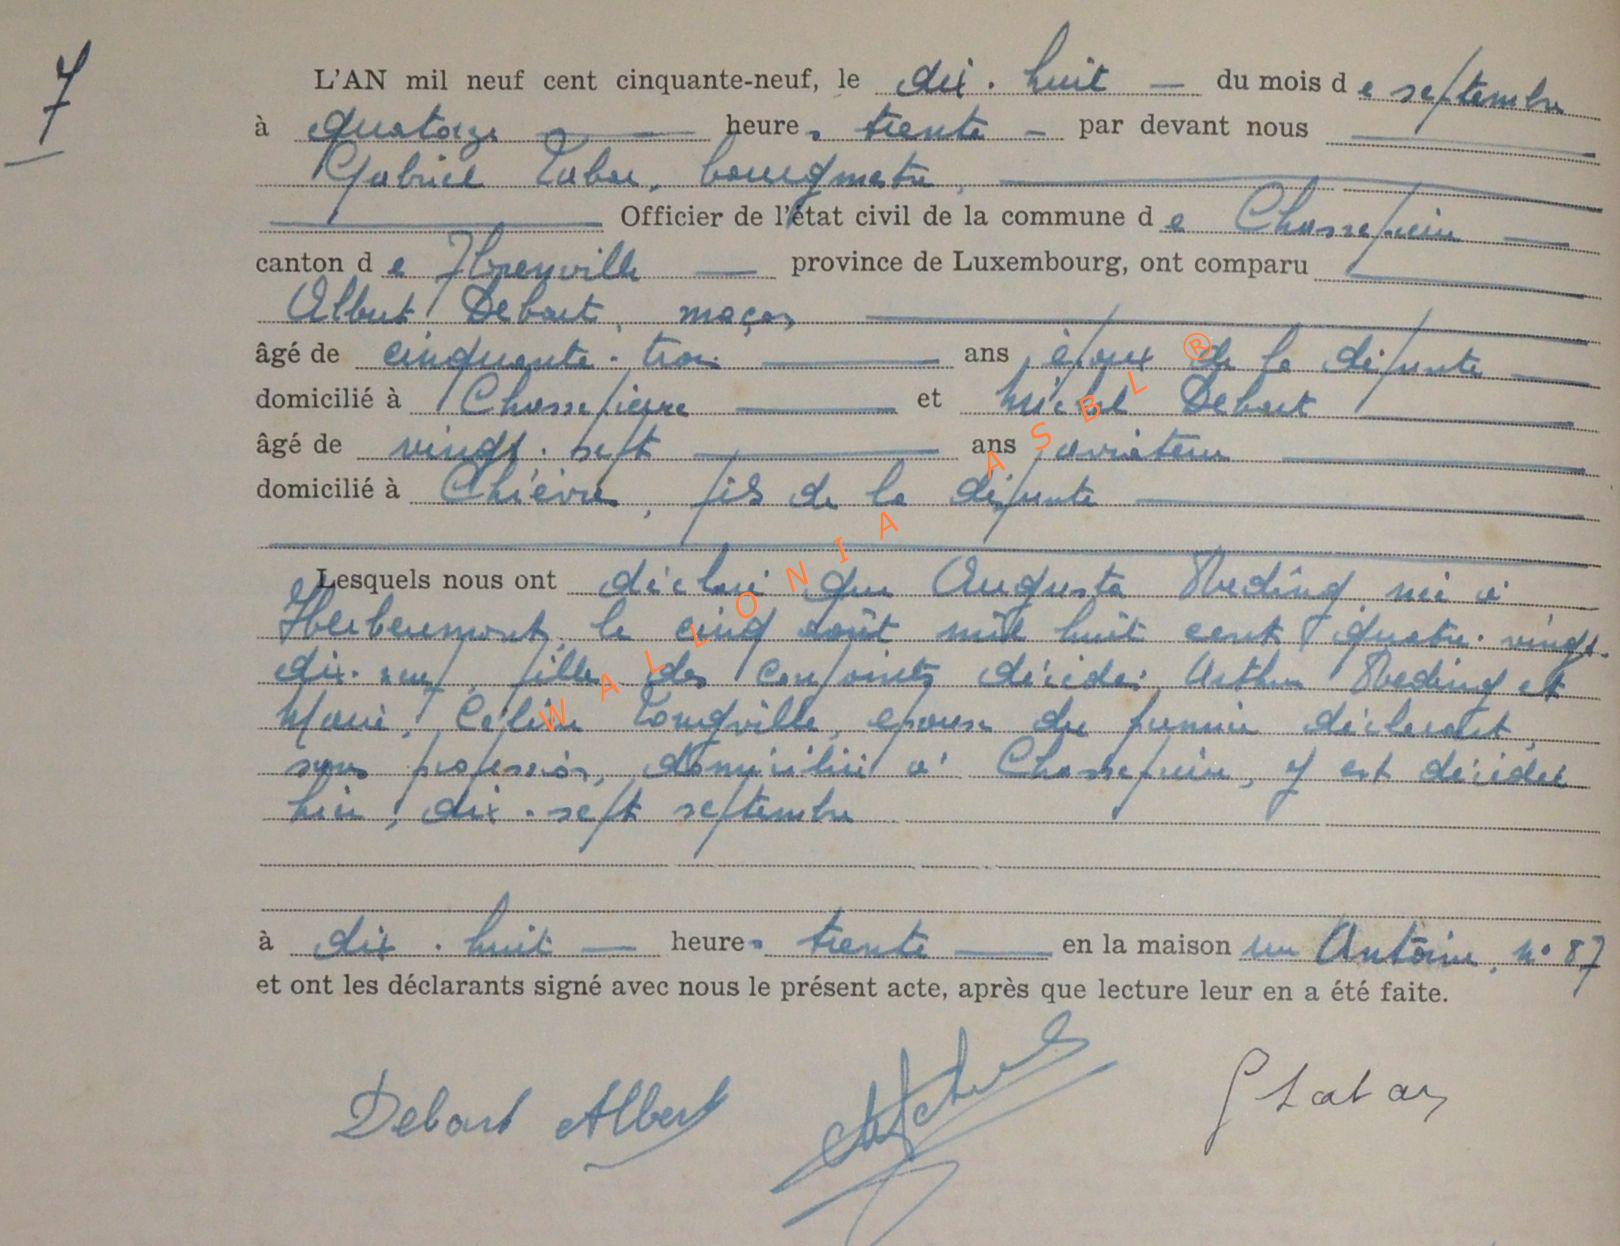 7
L'AN mil neuf cent cinquante-neuf, le dix-huit — du mois de septembre
à quatorze — heures trente — par devant nous —
Gabriel Tabar, bourgmestre, —
— Officier de l'état civil de la commune de Chassepierre —
canton de Florenville — province de Luxembourg, ont comparu —
Albert Debart, maçon —
âgé de cinquante-trois — ans, époux de la défunte —
domicilié à Chassepierre — et Michel Debart —
âgé de vingt-sept — ans, aviateur —
domicilié à Chièvres, fils de la défunte —
Lesquels nous ont déclaré que Augusta Reding née à
Herbeumont, le cinq août mil huit cent quatre-vingt-
dix-neuf, fille des conjoints décédés Arthur Reding et
Marie, Céline Tonqville, épouse du premier déclarant,
sans profession, domiciliée à Chassepierre, y est décédée
hier, dix-sept septembre
à dix-huit — heures trente — en la maison rue Antoine, n° 87
et ont les déclarants signé avec nous le présent acte, après que lecture leur en a été faite.
Debart Albert
G Tabar
WALLONIA ASBL ®